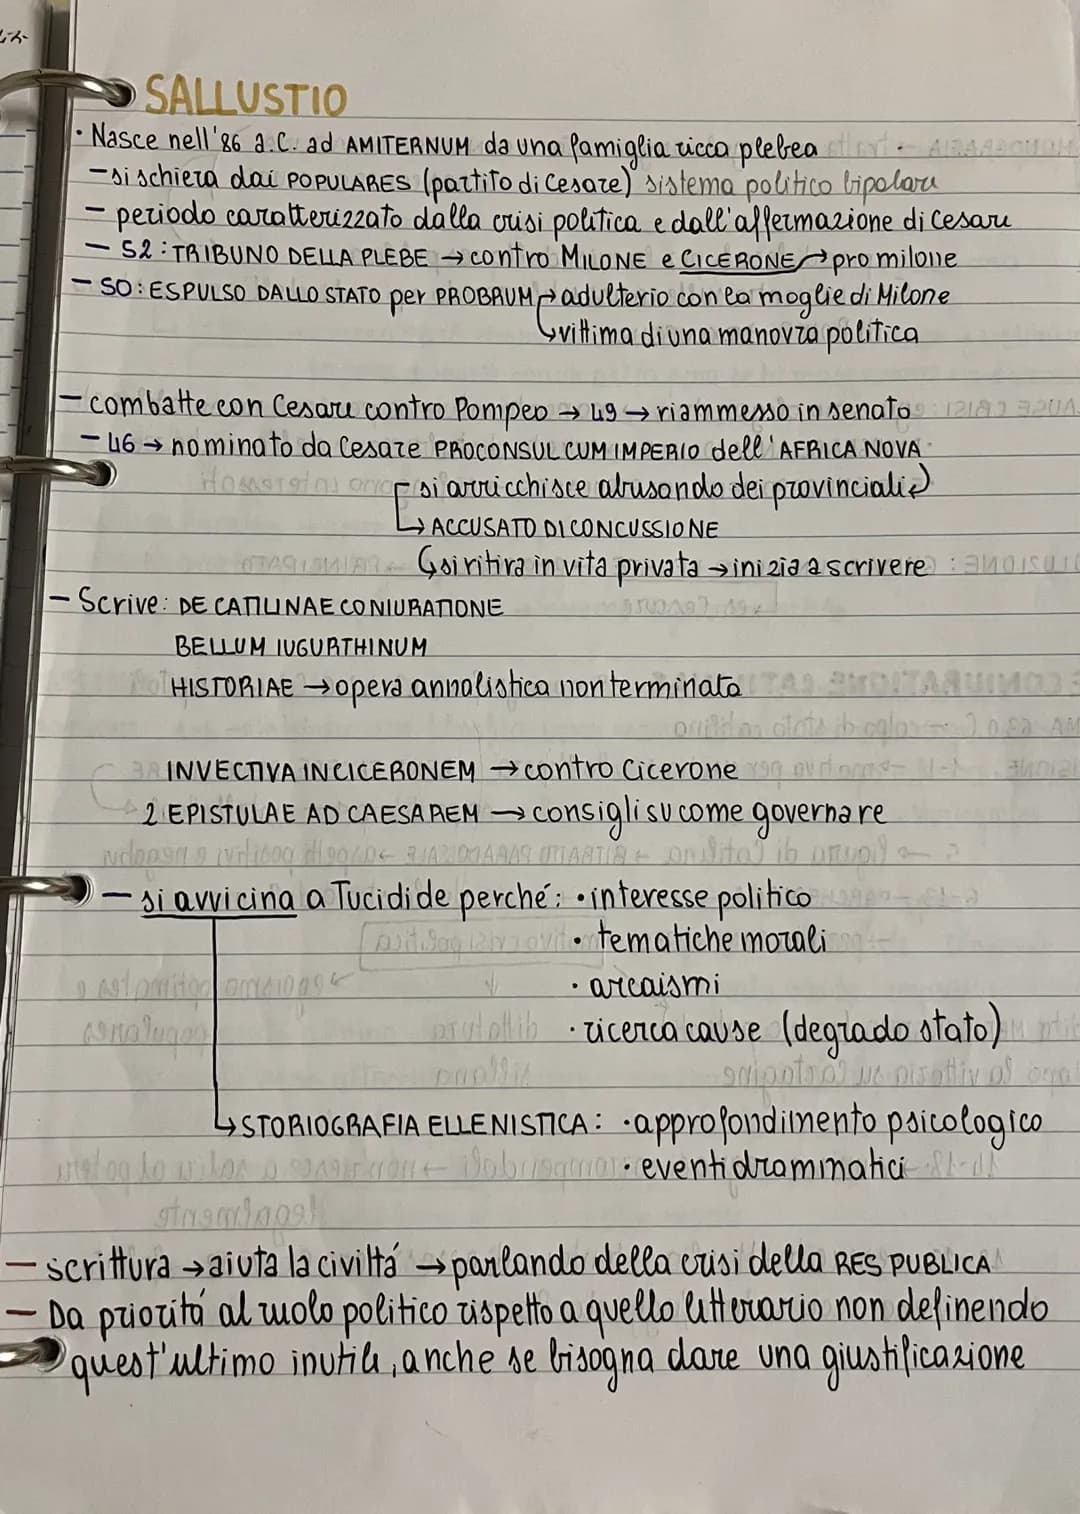 SALLUSTIO
· Nasce nell'86 a.C. ad AMITERNUM da una famiglia ricca plebea
- si schiera dai POPULARES (partito di Cesare) sistema politico bipolare
- periodo caratterizzato dalla crisi politica e dall'affermazione di Cesare
- 52: TRIBUNO DELLA PLEBE → contro MILONE e CICERONE → pro milone
- 50: ESPULSO DALLO STATO per PROBRUM → adulterio con la moglie di Milone
↳ vittima di una manovra politica
- combatte con Cesare contro Pompeo → 49 → riammesso in senato
- 46 → nominato da Cesare PROCONSUL CUM IMPERIO dell'AFRICA NOVA
si arricchisce abusando dei provinciali
↳ ACCUSATO DI CONCUSSIONE
↳ si ritira in vita privata → inizia a scrivere
- Scrive: DE CATILINAE CONIURATIONE
BELLUM IUGURTHINUM
HISTORIAE → opera annalistica non terminata
INVECTIVA IN CICERONEM → contro Cicerone
2 EPISTULAE AD CAESAREM → consigli su come governare
- si avvicina a Tucidide perché: · interesse politico
· tematiche morali
· arcaismi
· ricerca cause (degrado stato)
↳ STORIOGRAFIA ELLENISTICA: · approfondimento psicologico
· eventi dramminatici
- scrittura → aiuta la civiltá → parlando della crisi della RES PUBLICA
- Da prioritá al ruolo politico rispetto a quello letterario non definendo
quest'ultimo inutile, anche se bisogna dare una giustificazione